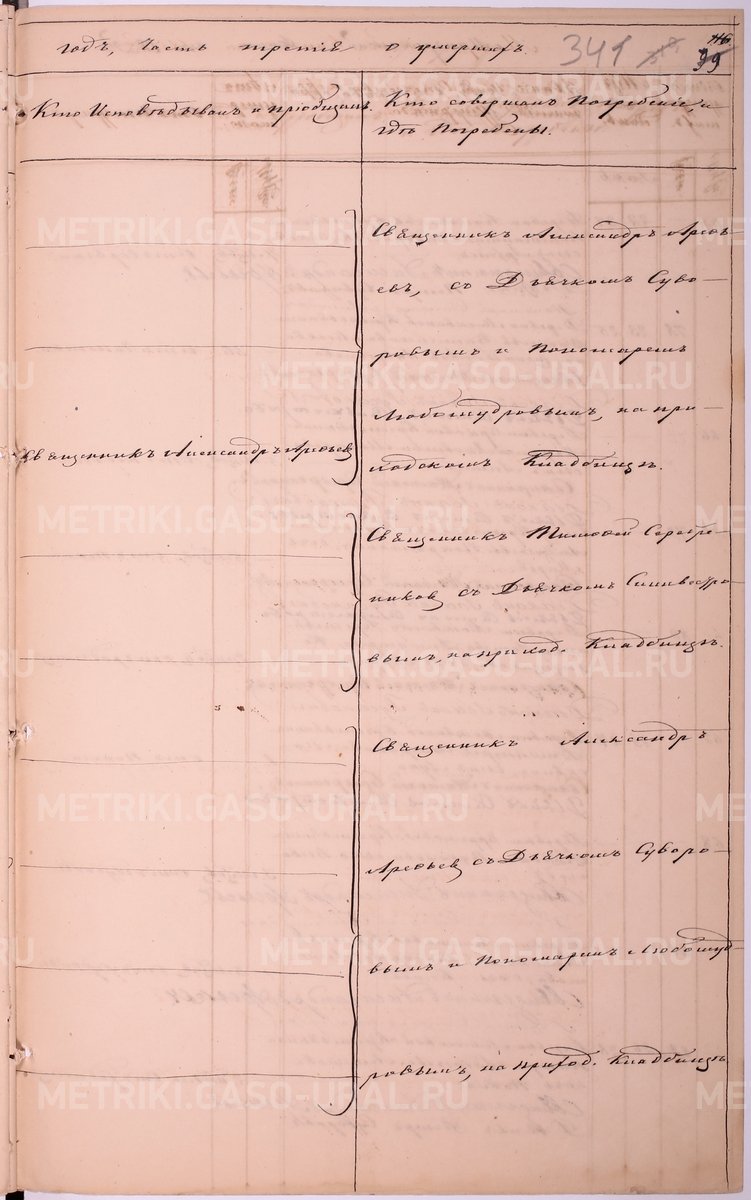 годъ, Часть третія о умершихъ.
341
116
39
Кто Исповѣдывалъ и пріобщалъ.
Кто совершалъ Погребеніе, и
гдѣ Погребены.
Священникъ Александръ Арефь-
евъ, съ Дьячкомъ Суво-
ровымъ и Пономаремъ
Любомудровымъ, на при-
ходскомъ Кладбищѣ.
Священникъ Александръ Арефьев
Священникъ Тимофей Серебре-
никовъ съ Дьячкомъ Сильвестро-
вымъ, на приход. Кладбищѣ.
Священникъ Александръ
Арефьевъ съ Дьячкомъ Суворо-
вымъ и Пономаремъ Любомуд-
ровымъ, на приход. Кладбищѣ
METRIKI.GASO-URAL.RU